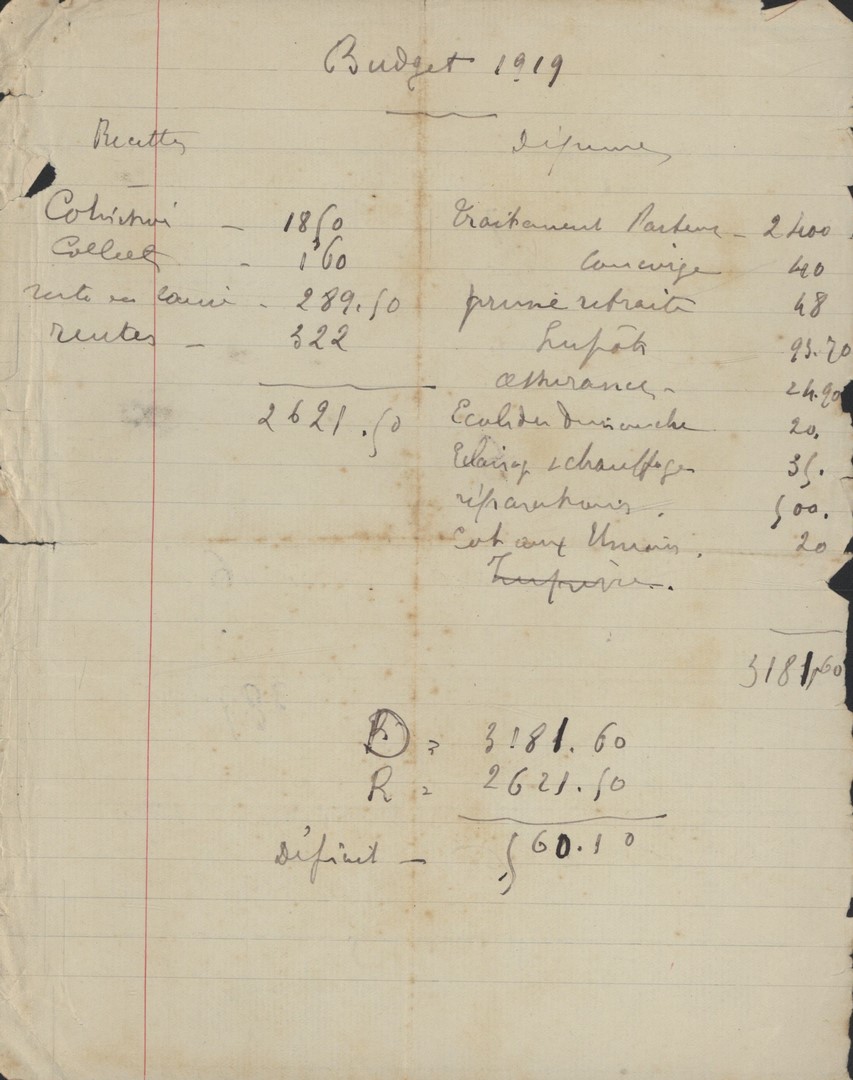 Budget 1919
Recettes
Cotisations – 1850
Collectes - 160
reste en caisse - 289.50
rentes – 322
2621.50
Dépenses
Traitement Pasteur – 2400
Concierge 40
prime retraite 48
Impôts 93.70
assurances – 24.90
Ecole du Dimanche 20.
Eclairage & chauffage 35. –
réparations . 500.
Cot aux Unions . 20
3181.60
D = 3181.60
R = 2621.50
Déficit – 560.10